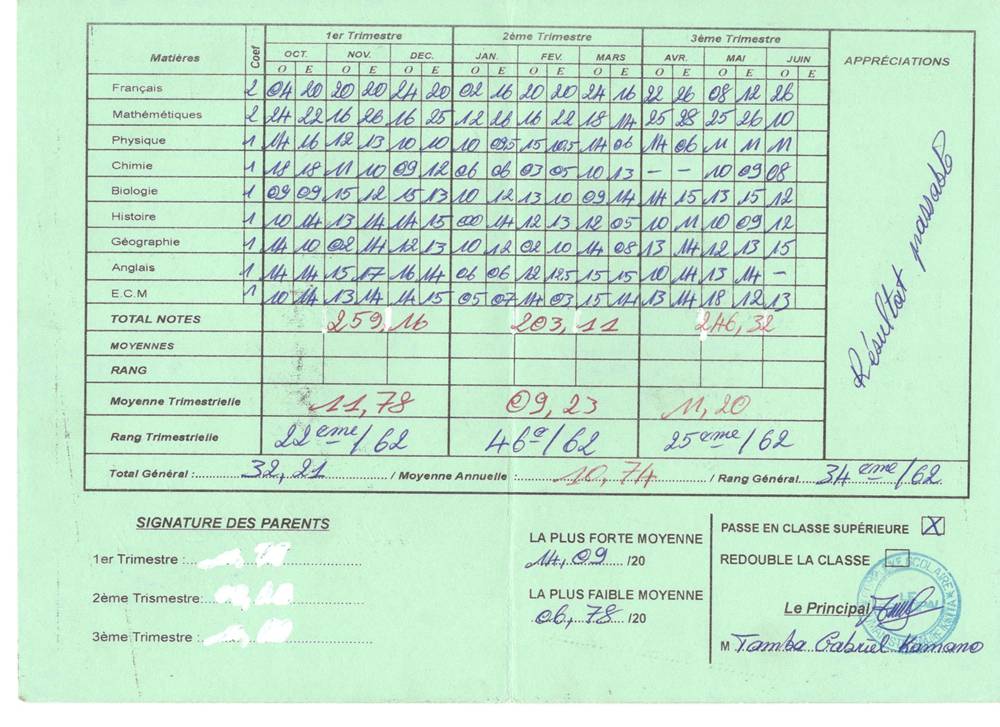 1er Trimestre 2ème Trimestre 3ème Trimestre
Matières Coef OCT. NOV. DEC. JAN. FEV. MARS AVR. MAI JUIN APPRÉCIATIONS
O E O E O E O E O E O E O E O E O E
Français 2 04 20 20 20 24 20 02 16 20 20 24 16 22 26 08 12 26
Mathémétiques 2 24 22 16 26 16 25 12 26 16 22 18 14 25 28 25 26 10
Physique 1 14 16 12 13 10 10 10 09,5 15 10,5 14 06 14 06 11 11 11
Chimie 1 18 18 11 10 09 12 06 06 03 05 10 13 - - 10 09 08
Biologie 1 09 09 15 12 15 13 10 12 13 10 09 14 14 15 13 15 12
Histoire 1 10 14 13 14 14 15 00 14 12 13 12 05 10 11 10 09 12
Géographie 1 14 10 02 14 12 13 10 12 02 10 14 08 13 14 12 13 15
Anglais 1 14 14 15 17 16 14 06 06 12 12,5 15 15 10 14 13 14 -
E.C.M 1 10 14 13 14 14 15 05 07 14 03 15 14 13 14 18 12 13
TOTAL NOTES 259,16 203,11 246,32
MOYENNES
RANG
Moyenne Trimestrielle 11,78 09,23 11,20
Rang Trimestrielle 22ème/62 46e/62 25ème/62
Résultat passable
Total Général : 32,21 / Moyenne Annuelle : 10,74 / Rang Général 34ème/62
SIGNATURE DES PARENTS
1er Trimestre :
2ème Trismestre:
3ème Trimestre :
LA PLUS FORTE MOYENNE
14,09 /20
LA PLUS FAIBLE MOYENNE
06,78 /20
PASSE EN CLASSE SUPÉRIEURE X
REDOUBLE LA CLASSE
Le Principal
M Tamba Gabriel Kamano